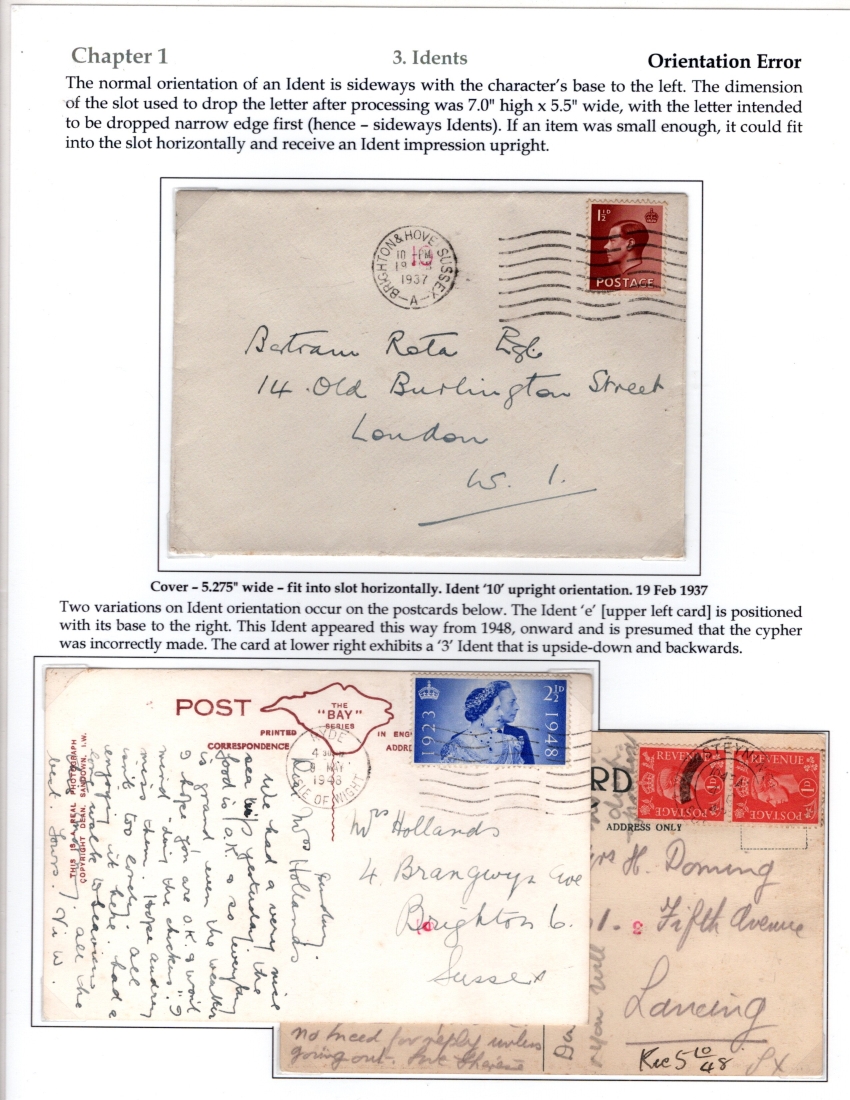 Chapter 1
3. Idents
Orientation Error
The normal orientation of an Ident is sideways with the character's base to the left. The dimension
of the slot used to drop the letter after processing was 7.0" high x 5.5" wide, with the letter intended
to be dropped narrow edge first (hence – sideways Idents). If an item was small enough, it could fit
into the slot horizontally and receive an Ident impression upright.
BRIGHTON & HOVE SUSSEX
10
19
1937
A
1½D
POSTAGE
Bertram Rota Esq.
14 Old Burlington Street
London
W. 1.
Cover – 5.275" wide – fit into slot horizontally. Ident '10' upright orientation. 19 Feb 1937
Two variations on Ident orientation occur on the postcards below. The Ident 'e' [upper left card] is positioned
with its base to the right. This Ident appeared this way from 1948, onward and is presumed that the cypher
was incorrectly made. The card at lower right exhibits a '3' Ident that is upside-down and backwards.
POST
THE
"BAY"
SERIES
PRINTED
IN ENG
CORRESPONDENCE
ADDRE
RYDE
MAY
1948
ISLE OF WIGHT
1923
2½D
1948
THIS IS A REAL PHOTOGRAPH
COPYRIGHT DEAN, SANDOWN, I.W.
Sunday.
Dear Mrs Hollands
We had a very nice
sea trip yesterday, the
food is O.K. & so everything
is grand, even the weather
I hope you are O.K. & won't
mind doing the chickens. I
miss them. Hope Audrey
isn't too lonely. All
enjoying it here. had a
long walk to Seaview
all the
best. Yours. Vi W.
Mrs Hollands
4 Brangwyn Ave
Brighton 6.
Sussex
RD
ADDRESS ONLY
STEYNING
REVENUE
1D
POSTAGE
REVENUE
1D
POSTAGE
Mrs H. Doming
1. Fifth Avenue
3
Lancing
Sx
Rec 5/10/48
you will
no need for reply unless
going out.